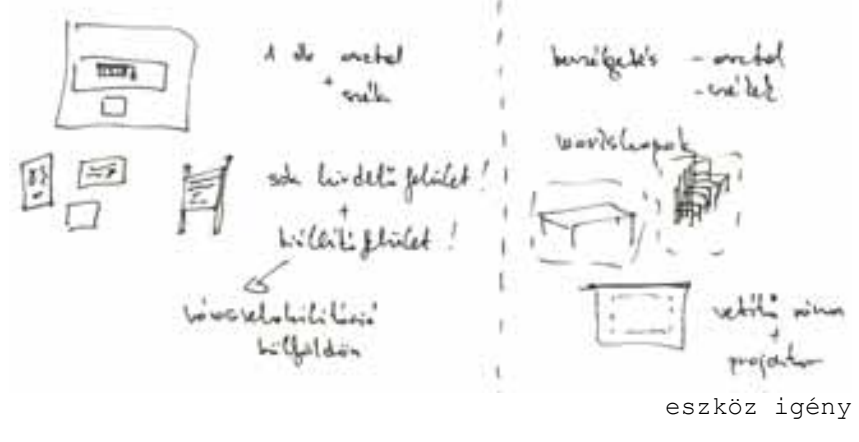 1 db asztal
+
szék
sok hirdető felület!
+
kiállító felület!
városrehabilitáció
külföldön
beszélgetés - asztal
- székek
workshopok
vetítő vászon
+
projektor
eszköz igény